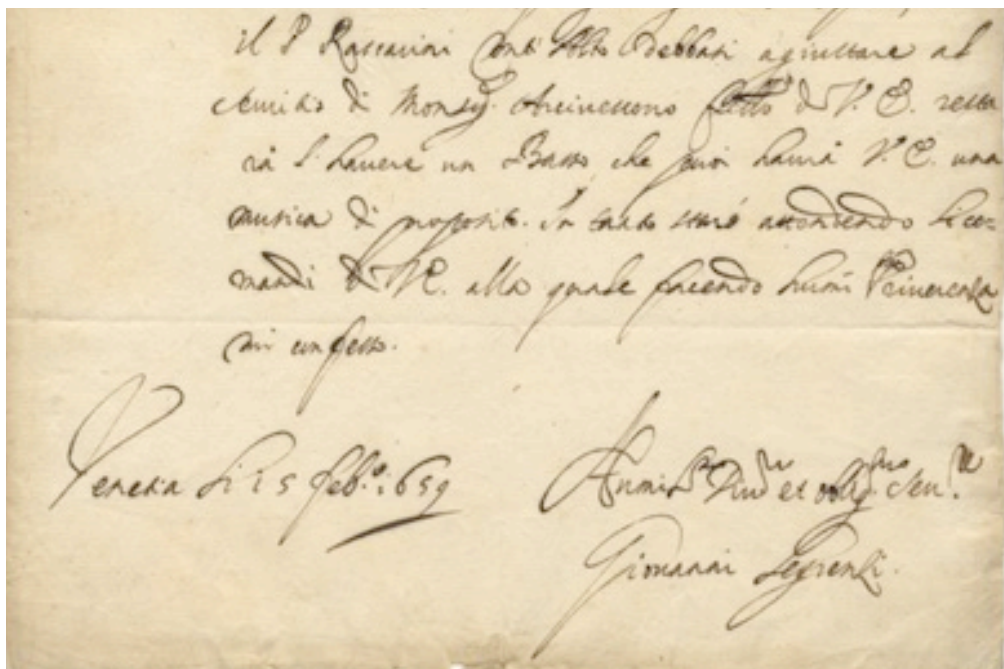 il P Rascarini debbasi agiustare al
di Monsig. Arciuescouo fr̃llo di V. E. resta
rà l'hauere un Basso che puoi haurà V. E. una
musica di proposito. In tanto starò attendendo li co=
mandi di V. E. alla quale facendo humil.ma Riuerenza
mi confesso.
Venetia li 15 feb.o 1659
Humil.mo Diu.mo et oblig.mo Seru.re
Giouanni Legrenzi.